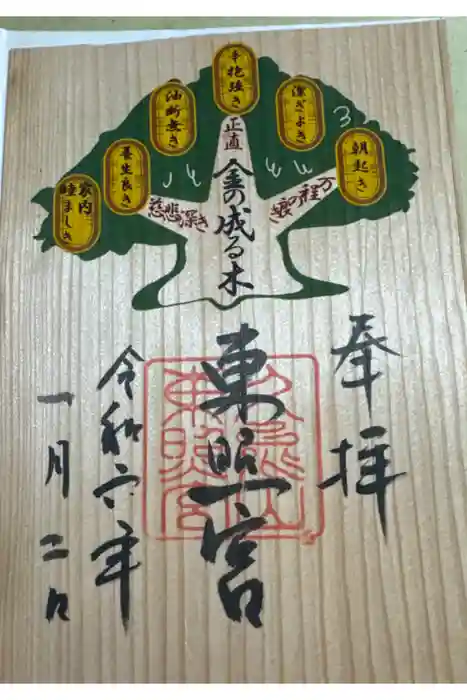 朝起き
潔ぎよき
辛抱強き
油断無き
養生良き
家内
睦ましき
正直
慈悲深き
万程の良き
金の成る木
奉拝
東照宮
令和六年
一月二日